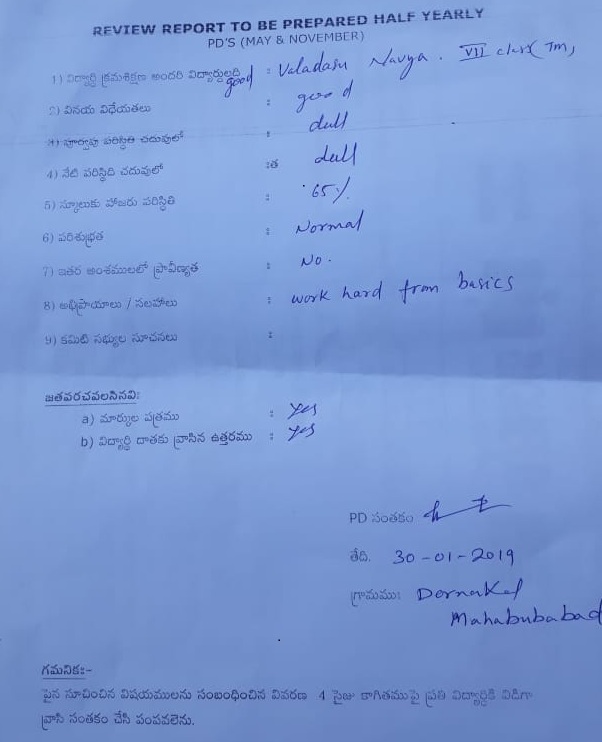 REVIEW REPORT TO BE PREPARED HALF YEARLY
PD'S (MAY & NOVEMBER)
1) విద్యార్థి క్రమశిక్షణ అందరి విద్యార్థులతో good : Valadasu Navya. VII class (Tm)
2) వినయ విధేయతలు : good
3) పూర్వపు పరిస్థితి చదువులో : dull
4) నేటి పరిస్థితి చదువులో :త dull
5) స్కూలుకు హాజరు పరిస్థితి : 65%
6) పరిశుభ్రత : Normal
7) ఇతర అంశములలో ప్రావీణ్యత : No.
8) అభిప్రాయాలు / సలహాలు : work hard from basics
9) కమిటి సభ్యుల సూచనలు :
జతపరచవలసినవి:
a) మార్కుల పత్రము : Yes
b) విద్యార్థి దాతకు వ్రాసిన ఉత్తరము : Yes
PD సంతకం
తేది. 30-01-2019
గ్రామము: Dornakal
Mahabubabad
గమనిక:-
పైన సూచించిన విషయములను సంబంధించిన వివరణ 4 సైజు కాగితముపై ప్రతి విద్యార్థికి విడిగా
వ్రాసి సంతకం చేసి పంపవలెను.